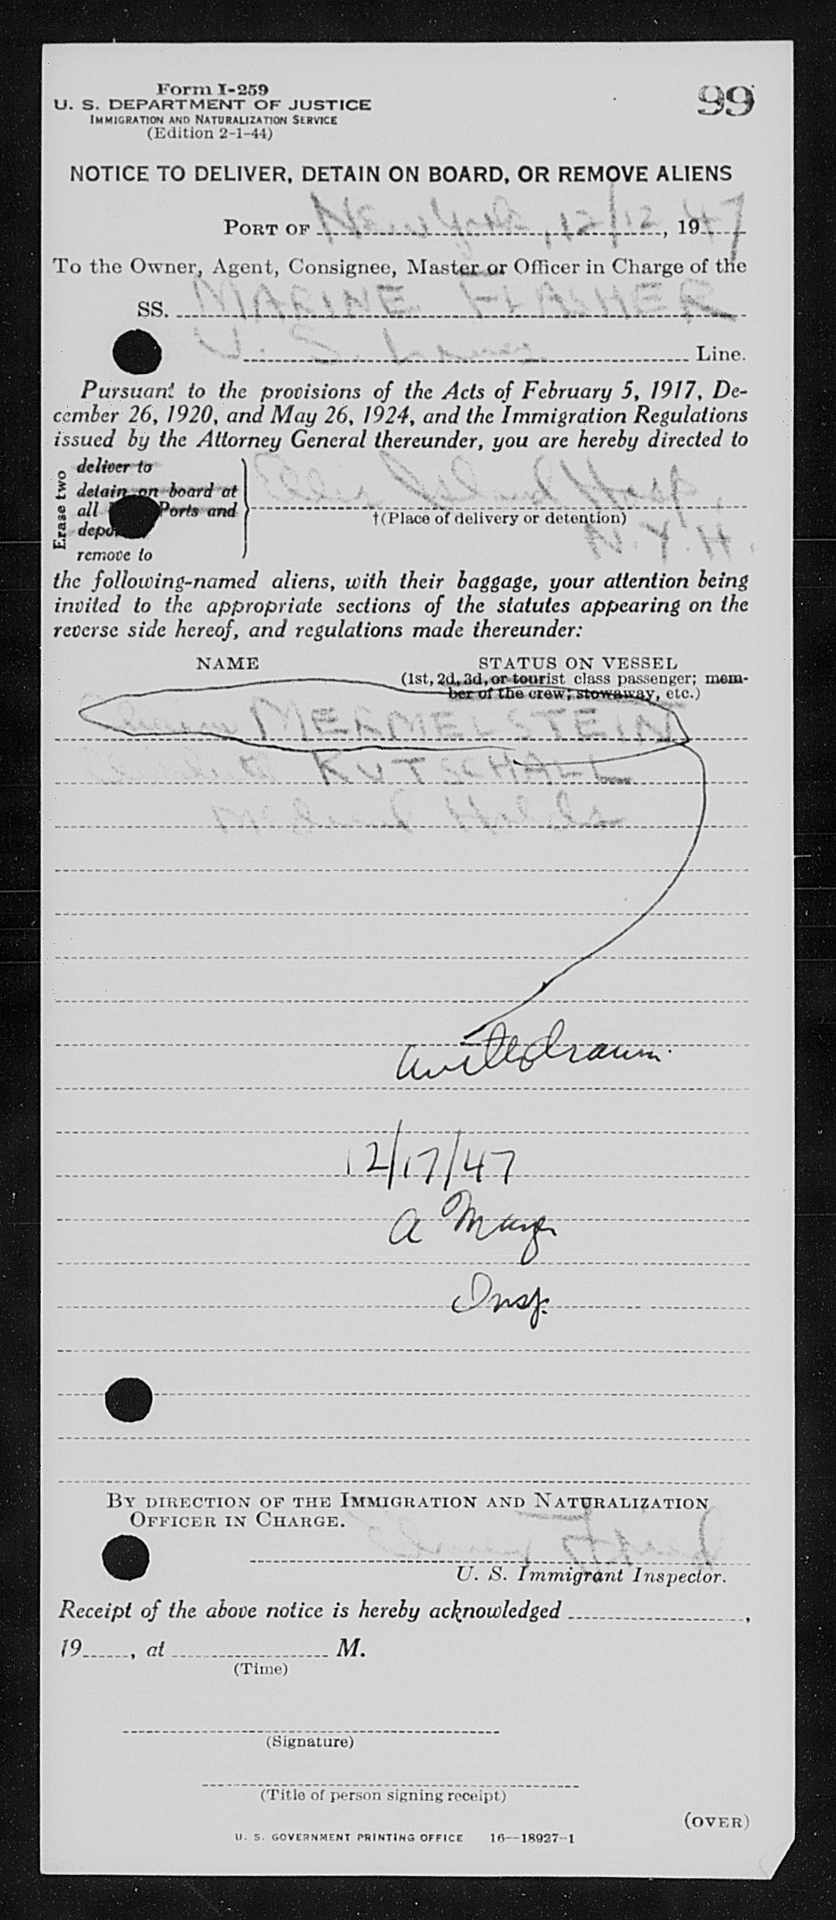 Form I-259
U. S. DEPARTMENT OF JUSTICE
IMMIGRATION AND NATURALIZATION SERVICE
(Edition 2-1-44)
99
NOTICE TO DELIVER, DETAIN ON BOARD, OR REMOVE ALIENS
PORT OF New York, 12/12, 1947
To the Owner, Agent, Consignee, Master or Officer in Charge of the
SS. MARINE FLASHER
U. S. Lines Line.
Pursuant to the provisions of the Acts of February 5, 1917, De-
cember 26, 1920, and May 26, 1924, and the Immigration Regulations
issued by the Attorney General thereunder, you are hereby directed to
Erase two
deliver to
detain on board at
all Ports and
remove to
Ellis Island Hosp,
†(Place of delivery or detention)
N.Y.H.
the following-named aliens, with their baggage, your attention being
invited to the appropriate sections of the statutes appearing on the
reverse side hereof, and regulations made thereunder:
NAME STATUS ON VESSEL
(1st, 2d, 3d, or tourist class passenger; mem-
ber of the crew; stowaway, etc.)
MERMELSTEIN
KUTSCHALL
Medical Holds
withdrawn
12/17/47
Insp.
BY DIRECTION OF THE IMMIGRATION AND NATURALIZATION
OFFICER IN CHARGE.
U. S. Immigrant Inspector.
Receipt of the above notice is hereby acknowledged ,
19 , at M.
(Time)
(Signature)
(Title of person signing receipt)
(OVER)
U. S. GOVERNMENT PRINTING OFFICE 16—18927-1